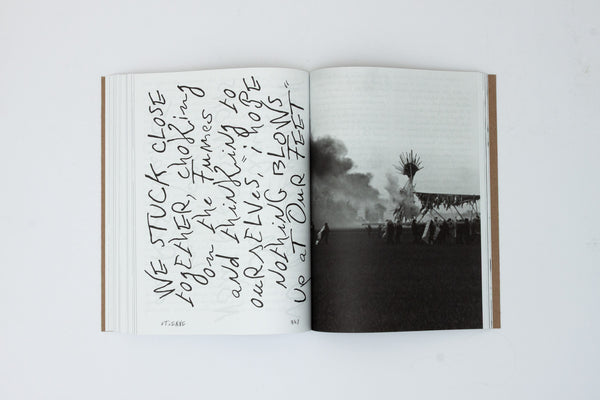 WE STUCK CLOSE
togetHER, choKing
on the Fumes
and thinKing to
ourSELVEs, "i hope
NotHiNG BLOWS
up aT OuR FEET"